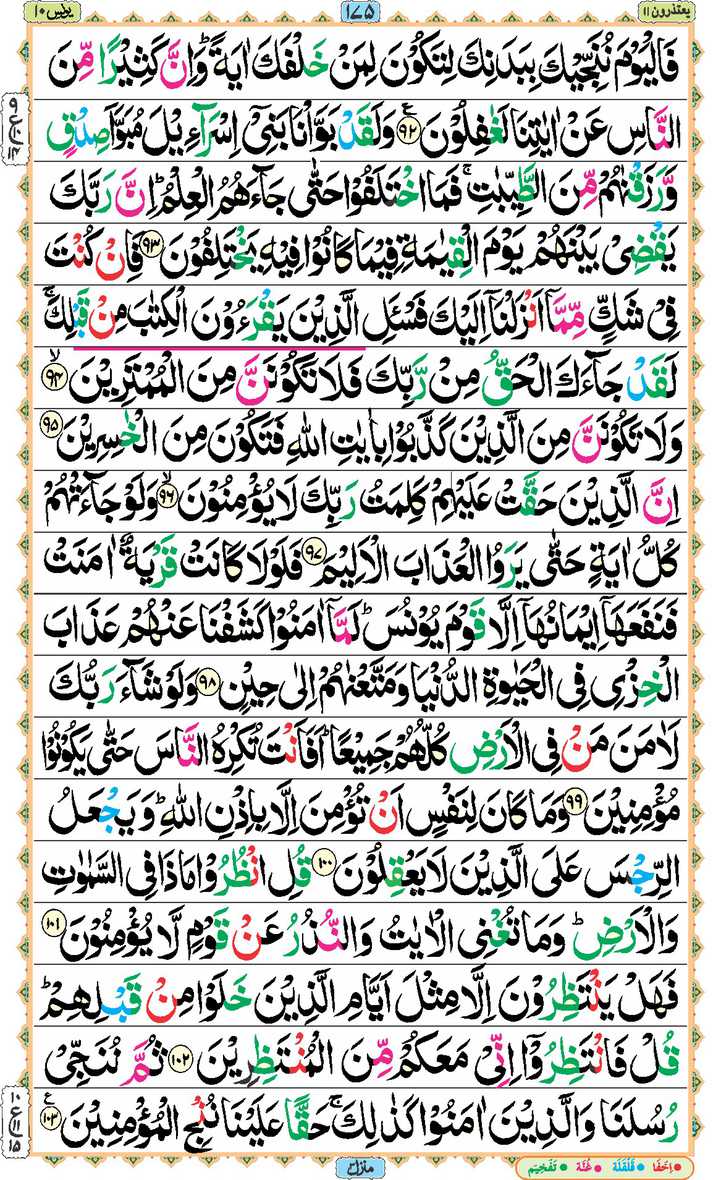 یعتذرون ۱۱
۱۷۵
یونس ۱۰
فَالْيَوْمَ نُنَجِّيْكَ بِبَدَنِكَ لِتَكُوْنَ لِمَنْ خَلْفَكَ اٰيَةً ؕ وَاِنَّ كَثِيْرًا مِّنَ
النَّاسِ عَنْ اٰيٰتِنَا لَغٰفِلُوْنَ ۹۲ وَلَقَدْ بَوَّاْنَا بَنِيْۤ اِسْرَآءِيْلَ مُبَوَّاَ صِدْقٍ
وَّرَزَقْنٰهُمْ مِّنَ الطَّيِّبٰتِ ۚ فَمَا اخْتَلَفُوْا حَتّٰى جَآءَهُمُ الْعِلْمُ ؕ اِنَّ رَبَّكَ
يَقْضِيْ بَيْنَهُمْ يَوْمَ الْقِيٰمَةِ فِيْمَا كَانُوْا فِيْهِ يَخْتَلِفُوْنَ ۹۳ فَاِنْ كُنْتَ
فِيْ شَكٍّ مِّمَّاۤ اَنْزَلْنَاۤ اِلَيْكَ فَسْئَلِ الَّذِيْنَ يَقْرَءُوْنَ الْكِتٰبَ مِنْ قَبْلِكَ ۚ
لَقَدْ جَآءَكَ الْحَقُّ مِنْ رَّبِّكَ فَلَا تَكُوْنَنَّ مِنَ الْمُمْتَرِيْنَ ۙ ۹۴
وَلَا تَكُوْنَنَّ مِنَ الَّذِيْنَ كَذَّبُوْا بِاٰيٰتِ اللّٰهِ فَتَكُوْنَ مِنَ الْخٰسِرِيْنَ ۹۵
اِنَّ الَّذِيْنَ حَقَّتْ عَلَيْهِمْ كَلِمَتُ رَبِّكَ لَا يُؤْمِنُوْنَ ۙ ۹۶ وَلَوْ جَآءَتْهُمْ
كُلُّ اٰيَةٍ حَتّٰى يَرَوُا الْعَذَابَ الْاَلِيْمَ ۹۷ فَلَوْلَا كَانَتْ قَرْيَةٌ اٰمَنَتْ
فَنَفَعَهَاۤ اِيْمَانُهَاۤ اِلَّا قَوْمَ يُوْنُسَ ؕ لَمَّاۤ اٰمَنُوْا كَشَفْنَا عَنْهُمْ عَذَابَ
الْخِزْيِ فِي الْحَيٰوةِ الدُّنْيَا وَمَتَّعْنٰهُمْ اِلٰى حِيْنٍ ۹۸ وَلَوْ شَآءَ رَبُّكَ
لَاٰمَنَ مَنْ فِي الْاَرْضِ كُلُّهُمْ جَمِيْعًا ؕ اَفَاَنْتَ تُكْرِهُ النَّاسَ حَتّٰى يَكُوْنُوْا
مُؤْمِنِيْنَ ۹۹ وَمَا كَانَ لِنَفْسٍ اَنْ تُؤْمِنَ اِلَّا بِاِذْنِ اللّٰهِ ؕ وَيَجْعَلُ
الرِّجْسَ عَلَى الَّذِيْنَ لَا يَعْقِلُوْنَ ۱۰۰ قُلِ انْظُرُوْا مَاذَا فِي السَّمٰوٰتِ
وَالْاَرْضِ ؕ وَمَا تُغْنِي الْاٰيٰتُ وَالنُّذُرُ عَنْ قَوْمٍ لَّا يُؤْمِنُوْنَ ۱۰۱
فَهَلْ يَنْتَظِرُوْنَ اِلَّا مِثْلَ اَيَّامِ الَّذِيْنَ خَلَوْا مِنْ قَبْلِهِمْ ؕ
قُلْ فَانْتَظِرُوْۤا اِنِّيْ مَعَكُمْ مِّنَ الْمُنْتَظِرِيْنَ ۱۰۲ ثُمَّ نُنَجِّيْ
رُسُلَنَا وَالَّذِيْنَ اٰمَنُوْا كَذٰلِكَ ۚ حَقًّا عَلَيْنَا نُنْجِ الْمُؤْمِنِيْنَ ۱۰۳ ع
منزل ۳
اِخفَا • قَلْقَلَه • غُنَّه • تَفْخِيْم •
۹ ع ۱۴
۱۰ ع ۱۱ ۱۵